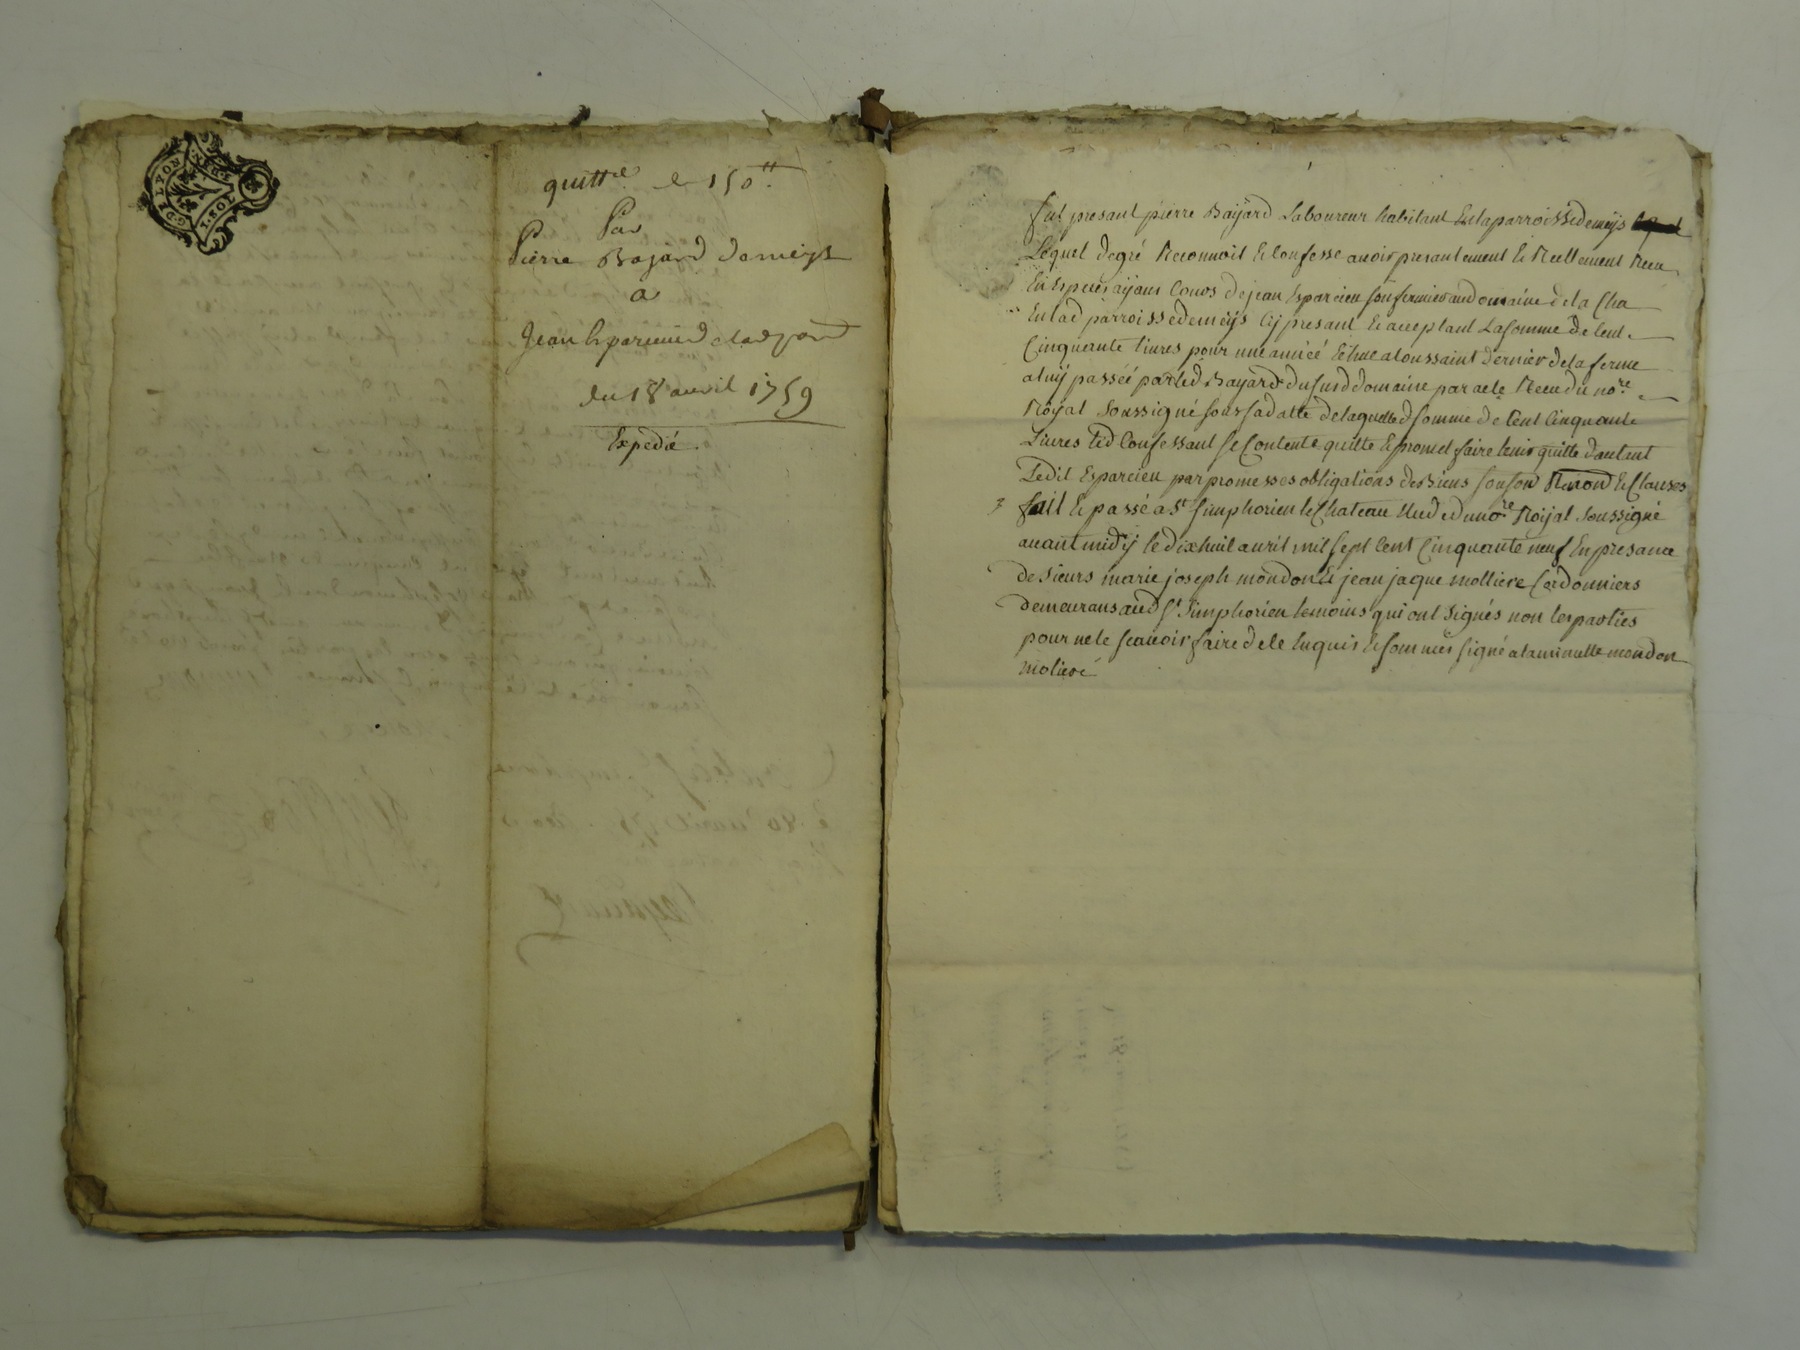 G. DE LYON
1. SOL
quitt.ce de 150 tt
Par
Pierre Bajard de meys
a
Jean Esparcieu
du 18 avril 1759
Expedié.
fut presant pierre Bayard Laboureur habitant En la parroisse de meijs
Lequel de gré Reconnoit et Confesse avoir presantement et Réellement Receu
En Especes aijant Cours de jean Esparcieu son fermier au domaine de la Cha
En lad parroisse de meijs Cij presant et acceptant La somme de Cent
Cinquante livres pour une année Echue a toussaint dernier de la ferme
a luij passéé par led Bayard du susd domaine par acte Receu du no.re
Roijal soussigné sous sa datte de laquelle d somme de Cent Cinquante
Livres led Confessant se Contente quitte et promet faire tenir quitte d'autant
Ledit Esparcieu par promesses obligations de Biens soub son Renond et Clauses
fait et passé a St simphorien le Chateau Etude du no.re Roijal soussigné
avant midij le dixhuit avril mil sept Cent Cinquante neuf En presance
de sieurs marie joseph mondon et jean jaque molliere Cordonniers
demeurans aud St simphorien temoins qui ont signés non les parties
pour ne le scavoir faire de ce Enquis et sommés signé a la minutte mondon
moliere